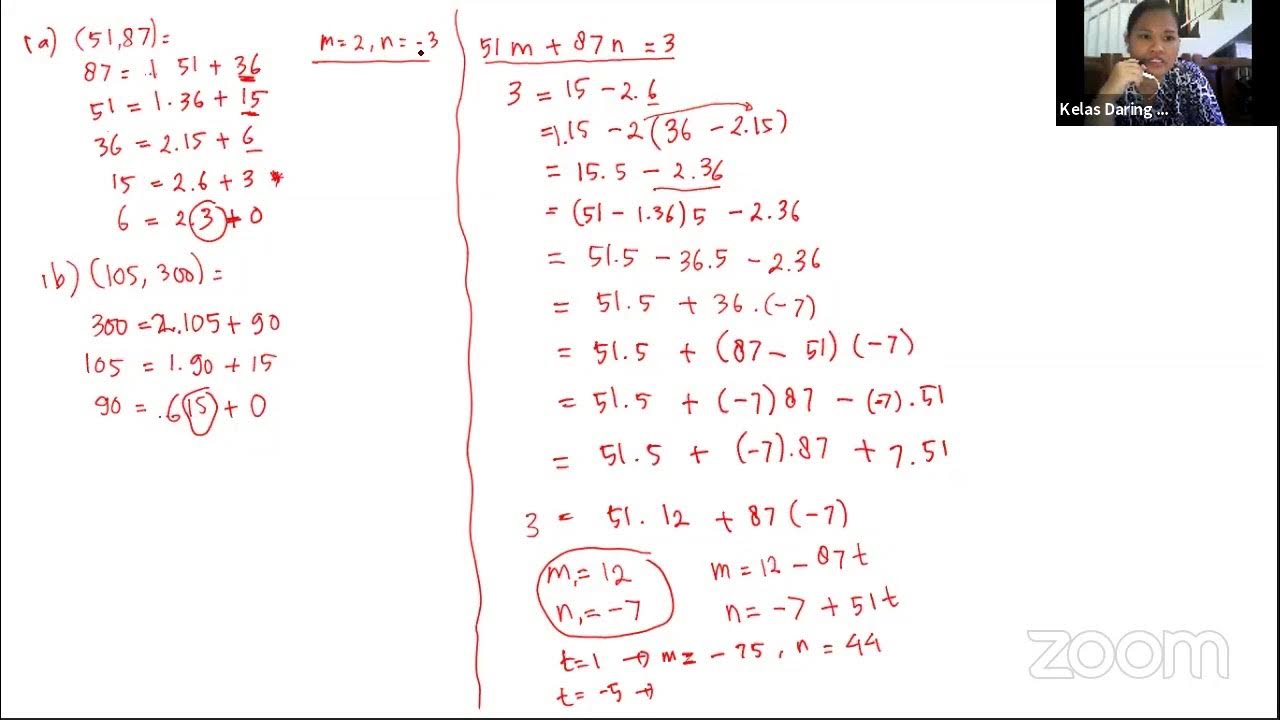 1a) (51,87) =
87 = 1 51 + 36
51 = 1.36 + 15
36 = 2.15 + 6
15 = 2.6 + 3 *
6 = 2.3 + 0
1b) (105, 300) =
300 = 2.105 + 90
105 = 1.90 + 15
90 = .6 15 + 0
m = 2, n = -3
51 m + 87 n = 3
3 = 15 - 2.6
= 1.15 - 2 (36 - 2.15)
= 15.5 - 2.36
= (51 - 1.36) 5 - 2.36
= 51.5 - 36.5 - 2.36
= 51.5 + 36.(-7)
= 51.5 + (87 - 51) (-7)
= 51.5 + (-7) 87 - (-7).51
= 51.5 + (-7).87 + 7.51
3 = 51.12 + 87 (-7)
m₁ = 12
n₁ = -7
m = 12 - 87t
n = -7 + 51t
t = 1 → m = -75, n = 44
t = -5 →
Kelas Daring ...
zoom